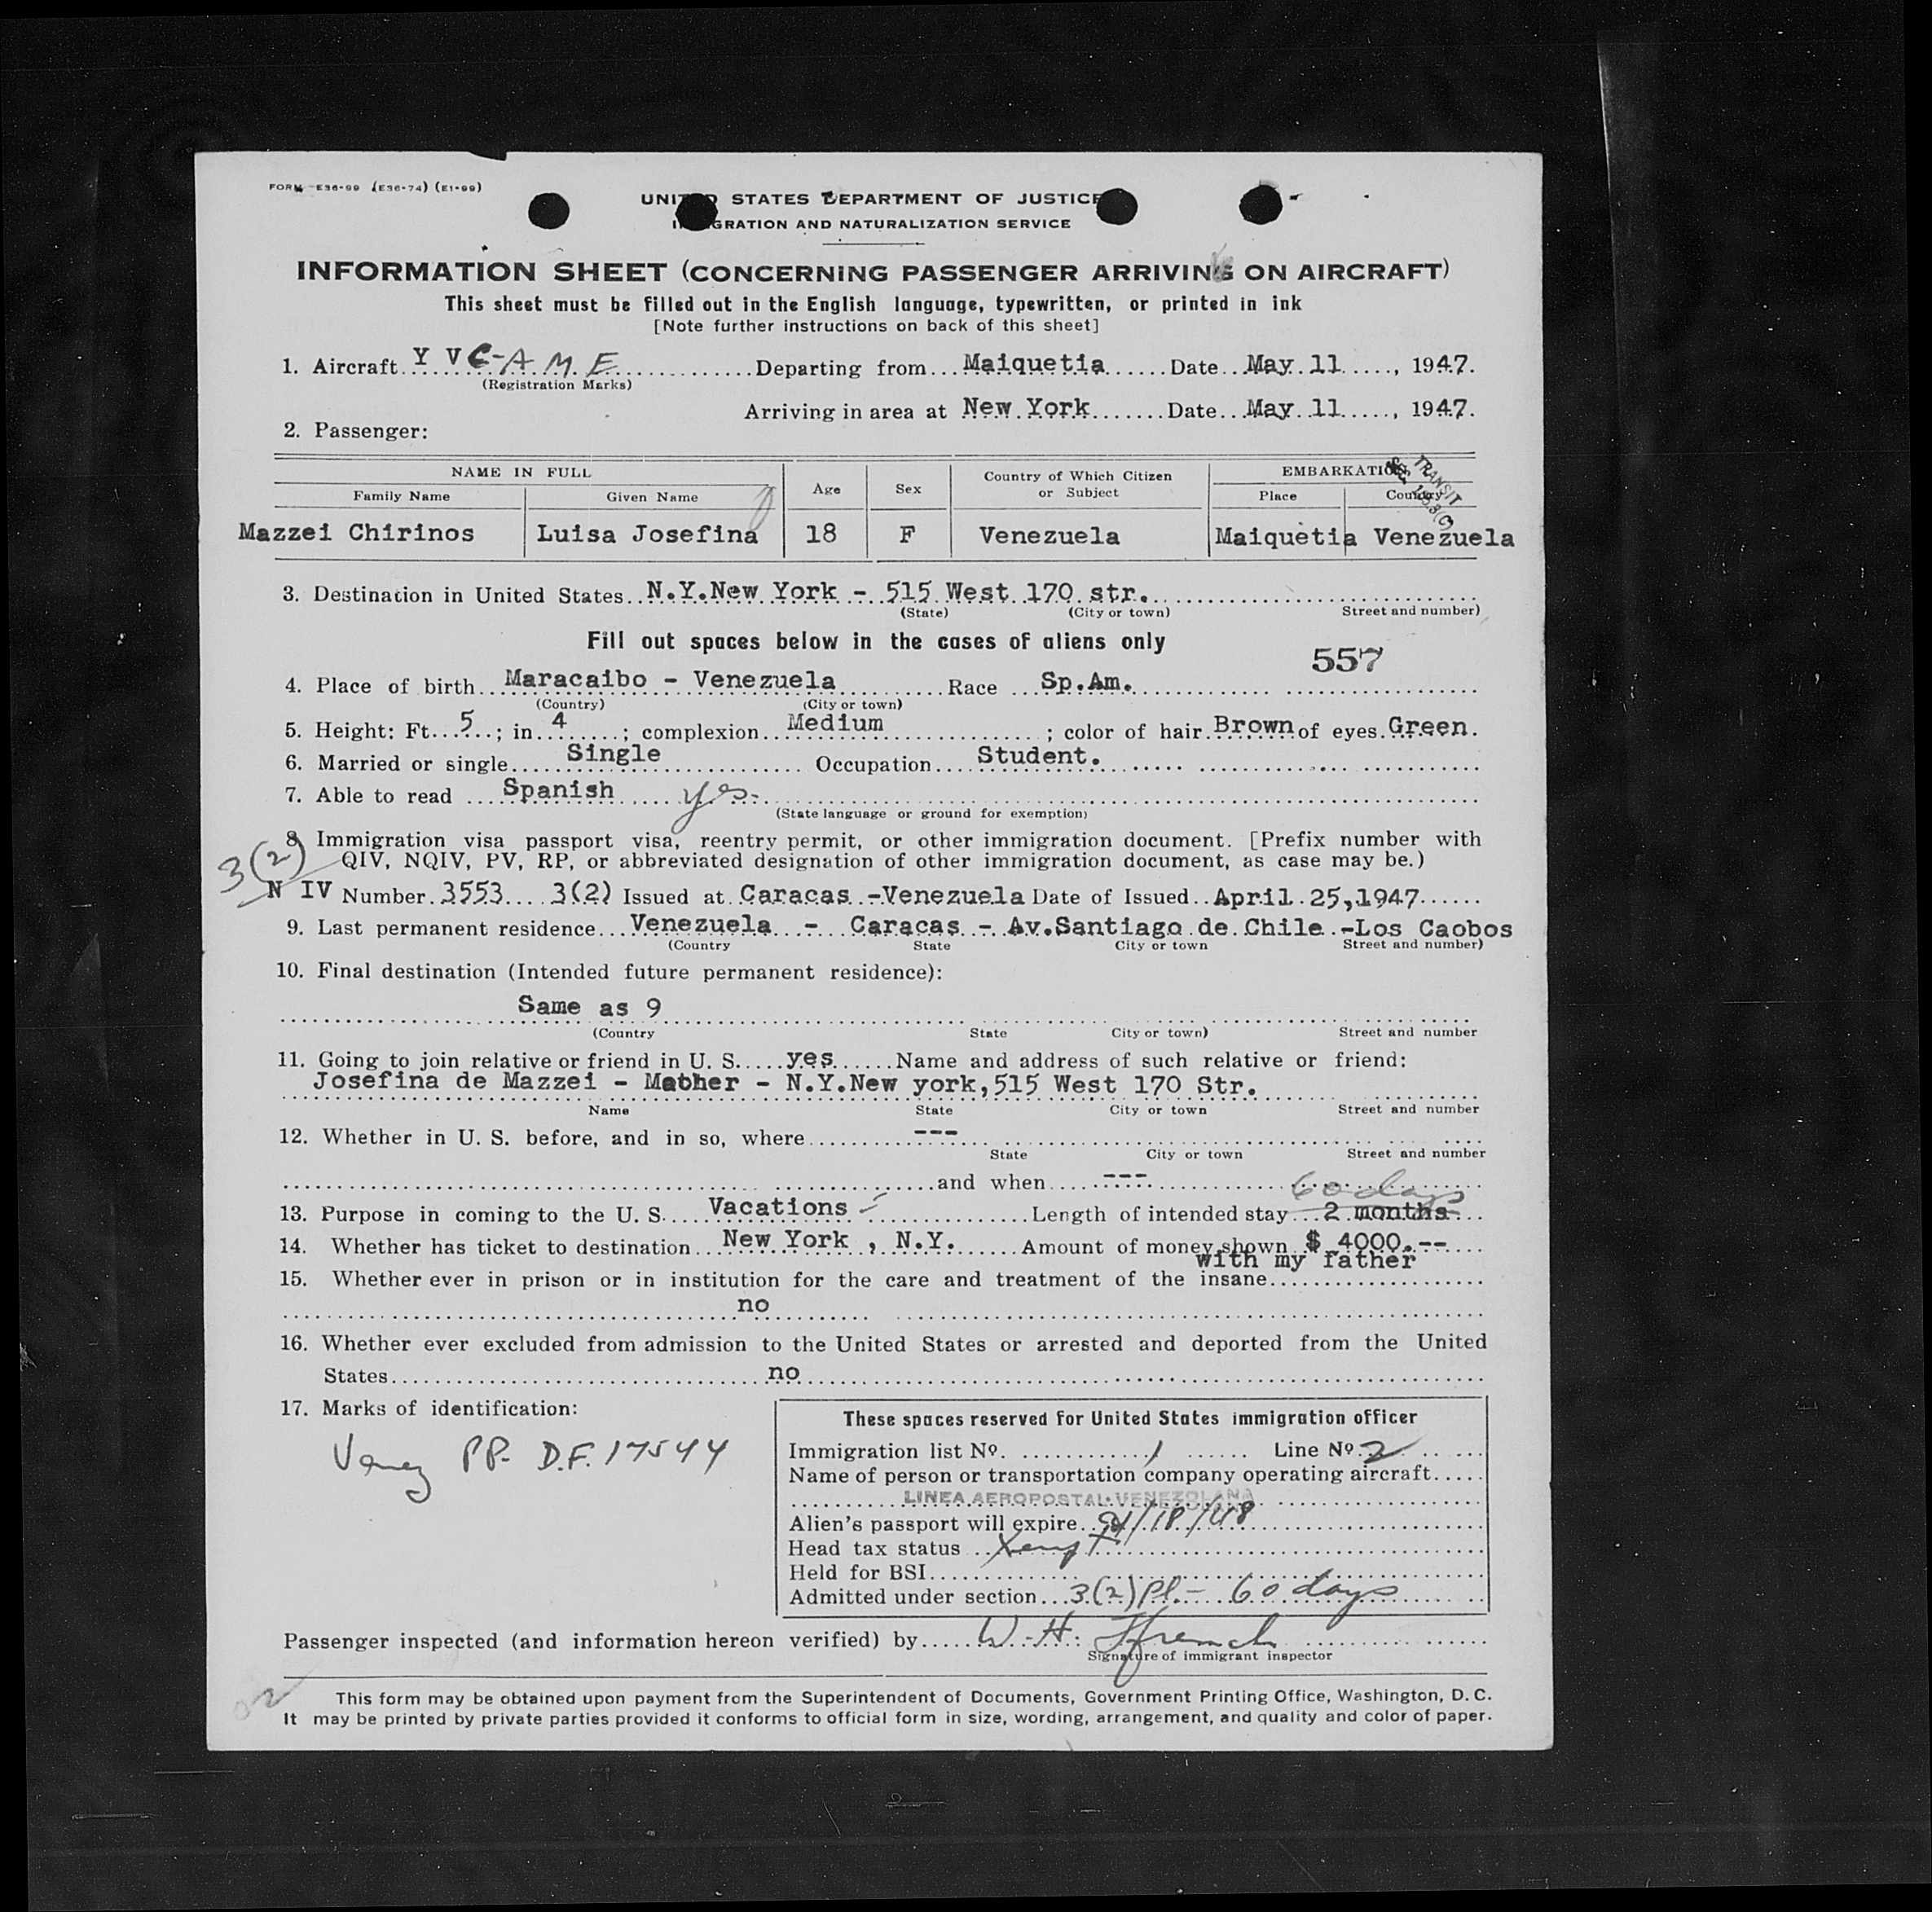 FORM E36-99 (E36-74) (E1-99)
UNITED STATES DEPARTMENT OF JUSTICE
IMMIGRATION AND NATURALIZATION SERVICE
INFORMATION SHEET (CONCERNING PASSENGER ARRIVING ON AIRCRAFT)
This sheet must be filled out in the English language, typewritten, or printed in ink
[Note further instructions on back of this sheet]
1. Aircraft Y V C-A M E Departing from Maiquetia Date May 11, 1947.
(Registration Marks)
Arriving in area at New York Date May 11, 1947.
2. Passenger:
NAME IN FULL Age Sex Country of Which Citizen or Subject EMBARKATION
Family Name Given Name Place Country
TRANSIT
Mazzei Chirinos Luisa Josefina 18 F Venezuela Maiquetia Venezuela
3. Destination in United States N.Y.New York - 515 West 170 str.
(State) (City or town) Street and number)
Fill out spaces below in the cases of aliens only
557
4. Place of birth Maracaibo - Venezuela Race Sp.Am.
(Country) (City or town)
5. Height: Ft. 5; in. 4; complexion Medium; color of hair Brown of eyes Green.
6. Married or single Single Occupation Student.
7. Able to read Spanish yes-
(State language or ground for exemption)
8 Immigration visa passport visa, reentry permit, or other immigration document. [Prefix number with
3(2) QIV, NQIV, PV, RP, or abbreviated designation of other immigration document, as case may be.)
N IV Number 3553 3(2) Issued at Caracas -Venezuela Date of Issued April 25,1947
9. Last permanent residence Venezuela - Caracas - Av.Santiago de Chile -Los Caobos
(Country State City or town Street and number)
10. Final destination (Intended future permanent residence):
Same as 9
(Country State City or town) Street and number
11. Going to join relative or friend in U. S. yes Name and address of such relative or friend:
Josefina de Mazzei - Mother - N.Y.New york,515 West 170 Str.
Name State City or town Street and number
12. Whether in U. S. before, and in so, where ---
State City or town Street and number
and when ---
60 days
13. Purpose in coming to the U. S. Vacations Length of intended stay 2 months
14. Whether has ticket to destination New York , N.Y. Amount of money shown $ 4000.--
with my father
15. Whether ever in prison or in institution for the care and treatment of the insane
no
16. Whether ever excluded from admission to the United States or arrested and deported from the United
States no
17. Marks of identification:
Venez PP. D.F. 17544
These spaces reserved for United States immigration officer
Immigration list No. 1 Line No. 2
Name of person or transportation company operating aircraft
LINEA AEROPOSTAL VENEZOLANA
Alien's passport will expire /18/48
Head tax status Xempt
Held for BSI
Admitted under section 3(2) Pl.- 60 days
Passenger inspected (and information hereon verified) by W. H. Ffrench
Signature of immigrant inspector
This form may be obtained upon payment from the Superintendent of Documents, Government Printing Office, Washington, D. C.
It may be printed by private parties provided it conforms to official form in size, wording, arrangement, and quality and color of paper.